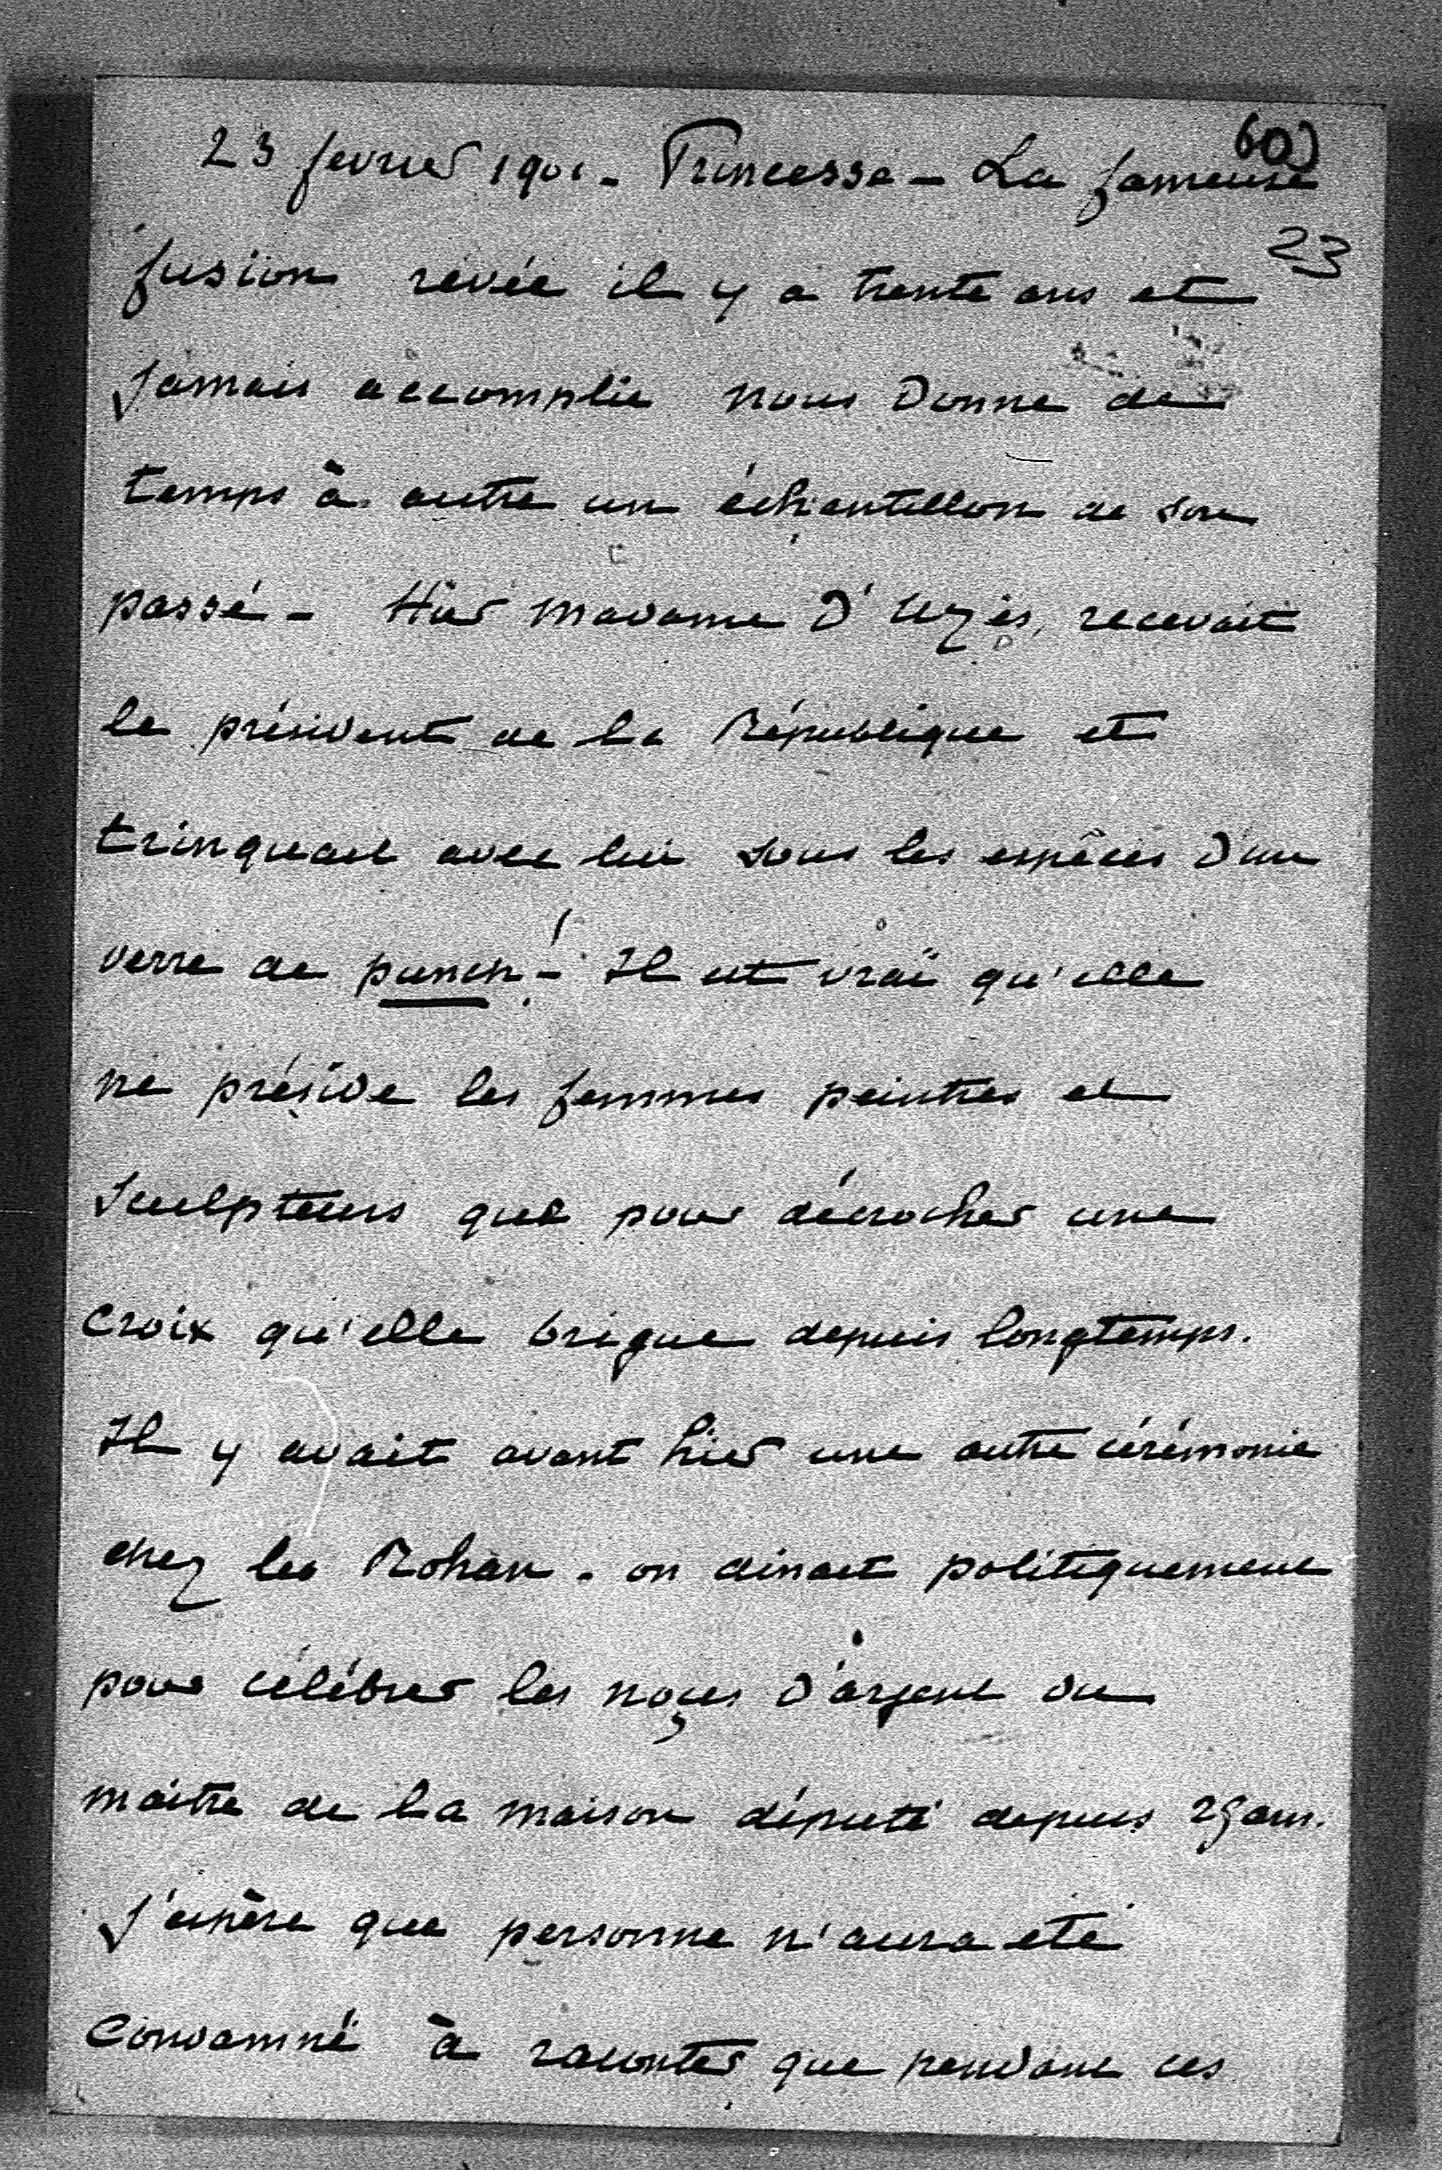 60)
23 fevrier 1901 - Princesse - La fameuse
23
fusion rêvée il y a trente ans et
jamais accomplie nous donne de
temps à autre un échantillon de son
passé - Hier madame d'Uzès, recevait
le président de la République et
trinquait avec lui sous les espèces d'un
verre de punch ! - Il est vrai qu'elle
ne préside les femmes peintres et
sculpteurs que pour décrocher une
croix qu'elle brigue depuis longtemps.
Il y avait avant hier une autre cérémonie
chez les Rohan. on dinait politiquement
pour célébrer les noces d'argent du
maître de la maison député depuis 25 ans.
J'espère que personne n'aura été
condamné à raconter que pendant ces